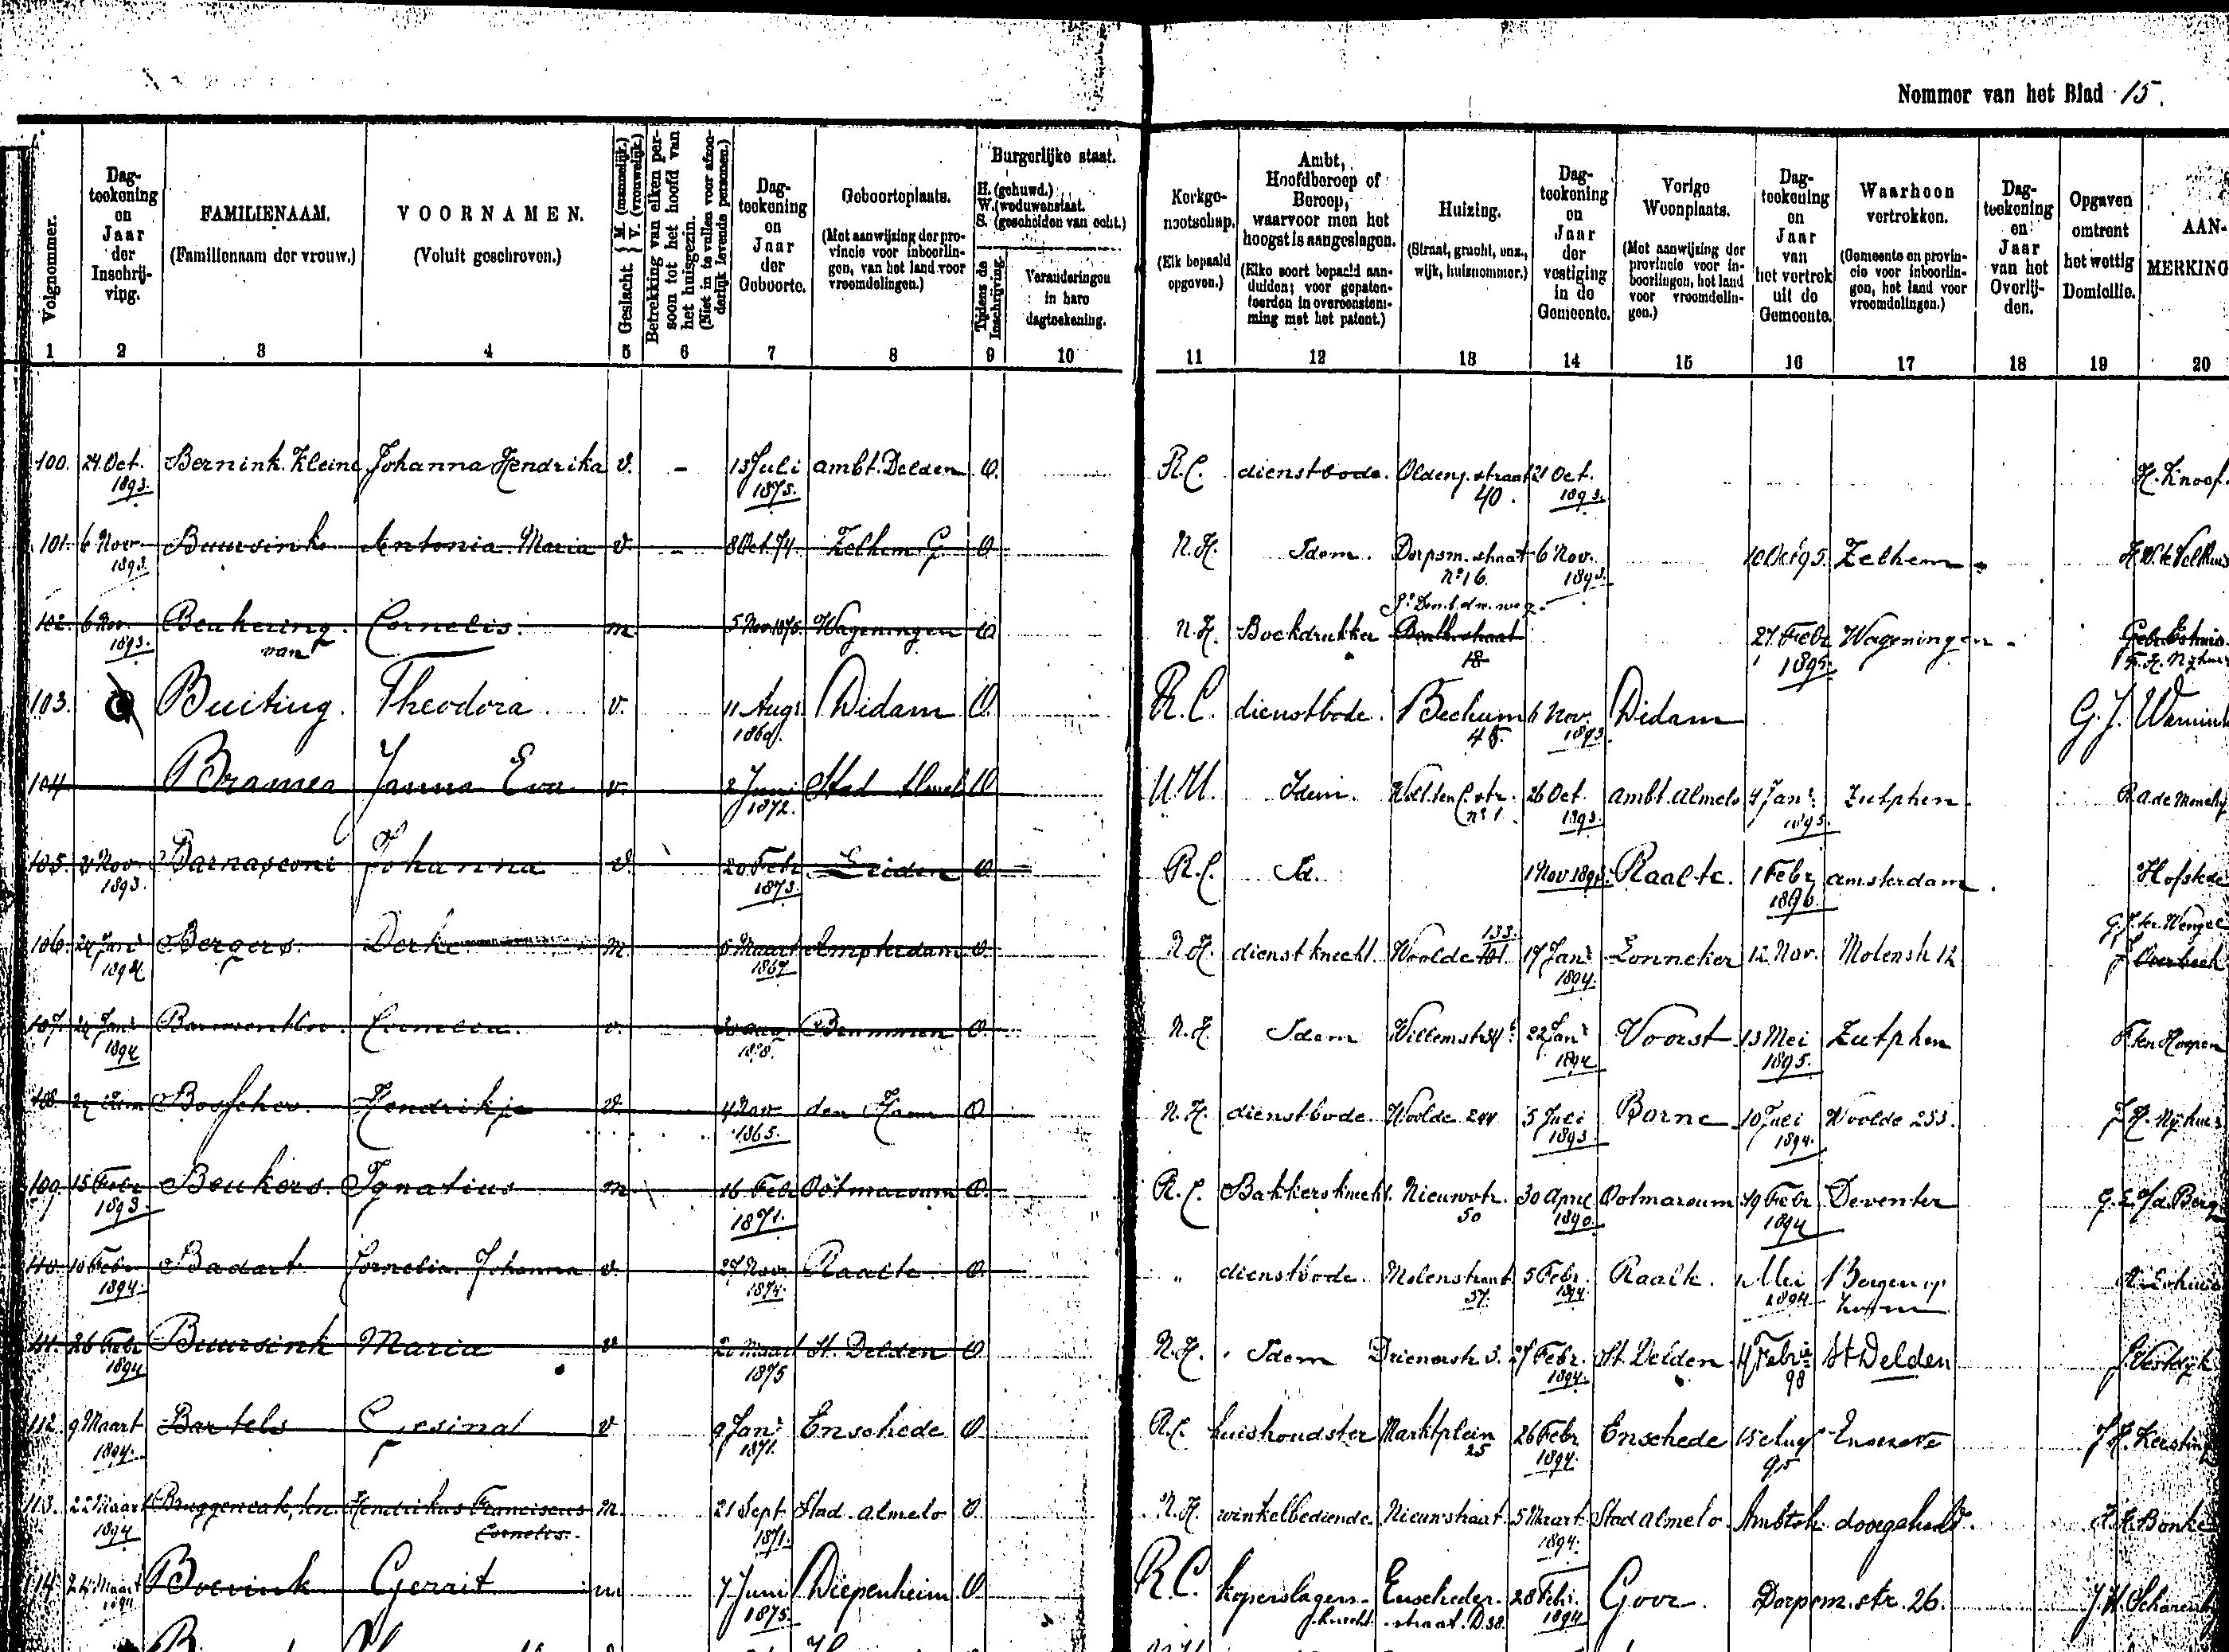 Nommer van het Blad 15.
Volgnommer.
Dagteekening en Jaar der Inschrijving.
FAMILIENAAM.
(Familienaam der vrouw.)
VOORNAMEN.
(Voluit geschreven.)
Geslacht { M. (mannelijk.) V. (vrouwelijk.)
Betrekking van elken persoon tot het hoofd van het huisgezin.
(Niet in te vullen voor afzonderlijk levende personen.)
Dagteekening en Jaar der Geboorte.
Geboorteplaats.
(Met aanwijzing der provincie voor inboorlingen, van het land voor vreemdelingen.)
Burgerlijke staat.
H. (gehuwd.)
W. (weduwenstaat.
S. (gescheiden van echt.)
Tijdens de Inschrijving.
Veranderingen in hare dagteekening.
Kerkgenootschap.
(Elk bepaald opgeven.)
Ambt, Hoofdberoep of Beroep, waarvoor men het hoogst is aangeslagen.
(Elke soort bepaald aanduiden; voor gepatenteerden in overeenstemming met het patent.)
Huizing.
(Straat, gracht, enz., wijk, huisnommer.)
Dagteekening en Jaar der vestiging in de Gemeente.
Vorige Woonplaats.
(Met aanwijzing der provincie voor inboorlingen, het land voor vreemdelingen.)
Dagteekening en Jaar van het vertrek uit de Gemeente.
Waarheen vertrokken.
(Gemeente en provincie voor inboorlingen, het land voor vreemdelingen.)
Dagteekening en Jaar van het Overlijden.
Opgaven omtrent het wettig Domicilie.
AANMERKING
1 2 3 4 5 6 7 8 9 10 11 12 13 14 15 16 17 18 19 20
100. 24 Oct. 1893. Bernink. Kleine Johanna Hendrika v. - 13 Juli 1875. ambt. Delden O. R.C. dienstbode. Oldenz. straat 40. 21 Oct. 1893. H. Knoof.
101. 6 Nov 1893. Buursink Antonia Maria v - 8 Oct. 74. Zelhem G O N.H. Idem. Dorpsm. straat no 16. 6 Nov. 1893. 10 Oct 95. Zelhem
102. 6 Nov. 1893. Beukering. van Cornelis. m 5 Nov 1875. Wageningen O N.H. Boekdrukker 18 27 Febr 1895. Wageningen
103. Buiting. Theodora v. 11 Augs. Didam O. R.C. dienstbode. Beckum 45. 6 Nov. 1893 Didam G.J.
104 Bramer Janna Eva v. 2 Juni 1872. Stad Almelo O Idem. no 1. 26 Oct. 1893. ambt. Almelo 4 Jan. 1895. Zutphen
105. Nov 1893. Barnasconi Johanna v 20 Febr 1873. Leiden O R.C. Id. 1 Nov 1893. Raalte. 1 Febr 1896. amsterdam Hofstede
106. 24 Jan 1894 Bergers. Derk m Maart 1867 Amsterdam O N.H. dienstknecht Woolde 133. 17 Jan 1894. Lonneker 12 Nov. Molenstr 12
107. Jan 1894 v. 20 Aug Brummen O. N.H. Idem Willemstr 22 Jan 1894 Voorst 13 Mei 1895. Zutphen F. ten Hoopen
108. Bosscher. Hendrikje v. 4 Nov 1865. den Ham O. N.H. dienstbode. Woolde 244 5 Juli 1893 Borne 10 Juli 1894. Woolde 253. J.H. Nijhuis
109. 15 Febr 1893 Beukers. Ignatius m 16 Feb 1871. Ootmarsum O. R.C. Bakkersknecht. Nieuwstr. 50 30 April 1890. Ootmarsum 19 Febr 1894 Deventer
110. 10 Febr 1894. Badart Cornelia Johanna v. 27 Nov 1874. Raalte. O. " dienstbode Molenstraat 57. 5 Febr. 1894. Raalte. Mei 1894 Bergen op Zoom
111. 26 Febr 1894 Buursink Maria v 20 Maart 1875 St. Delden O N.H. Idem Drienerstr. 3. 27 Febr. 1894. St. Delden 4 Febr 98 St Delden
112. 9 Maart 1894. Bartels Gesina v 9 Jan 1871. Enschede O. R.C. huishoudster Marktplein 25 26 Febr 1894. Enschede 15 Aug 95
113. 22 Maart 1894 Bruggencate, ten Hendrikus Franciscus Cornelis. m. 21 Sept 1871. Stad. Almelo O. N.H. winkelbediende Nieuwstraat 5 Maart 1894. Stad Almelo doorgehaald.
114. 24 Maart 1894 Boevink Gerrit m 7 Juni 1875. Diepenheim O. R.C. koperslagersknecht Enschedestraat. D.38. 28 Febr. 1894 Goor. Dorpsm. str. 26.